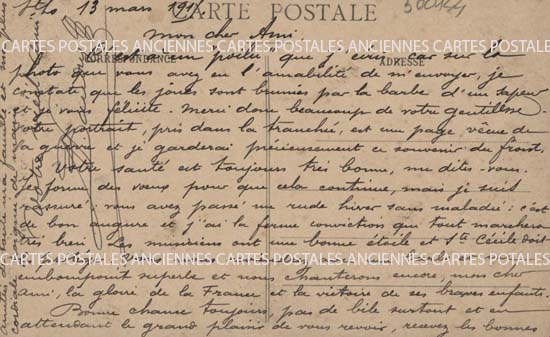 St Lo, 13 mars 191
CARTE POSTALE
500144
Mon cher Ami,
CORRESPONDANCE
ADRESSE
en poilu, que j'écris, car sur la
photo que vous avez eu l'amabilité de m'envoyer, je
constate que les joues sont brunies par la barbe d'un sapeur
et je vous félicite. Merci donc beaucoup de votre gentillesse.
Votre portrait, pris dans la tranchée, est une page vécue de
la guerre et je garderai précieusement ce souvenir du front.
Votre santé est toujours très bonne, me dites-vous.
Je forme des voeux pour que cela continue, mais je suis
rassuré, vous avez passé un rude hiver sans maladie : c'est
de bon augure et j'ai la ferme conviction que tout marchera
très bien. Les musiciens ont une bonne étoile et Ste Cécile doit
CARTES POSTALES ANCIENNES CARTES POSTALES ANCIENNES CARTES POSTALES
embonpoint superbe et nous chanterons encore, mon cher
Ami, la gloire de la France et la victoire de ses braves enfants.
Bonne chance toujours, pas de bile surtout et en
attendant le grand plaisir de vous revoir, recevez les bonnes
amitiés de toute ma famille et les plus